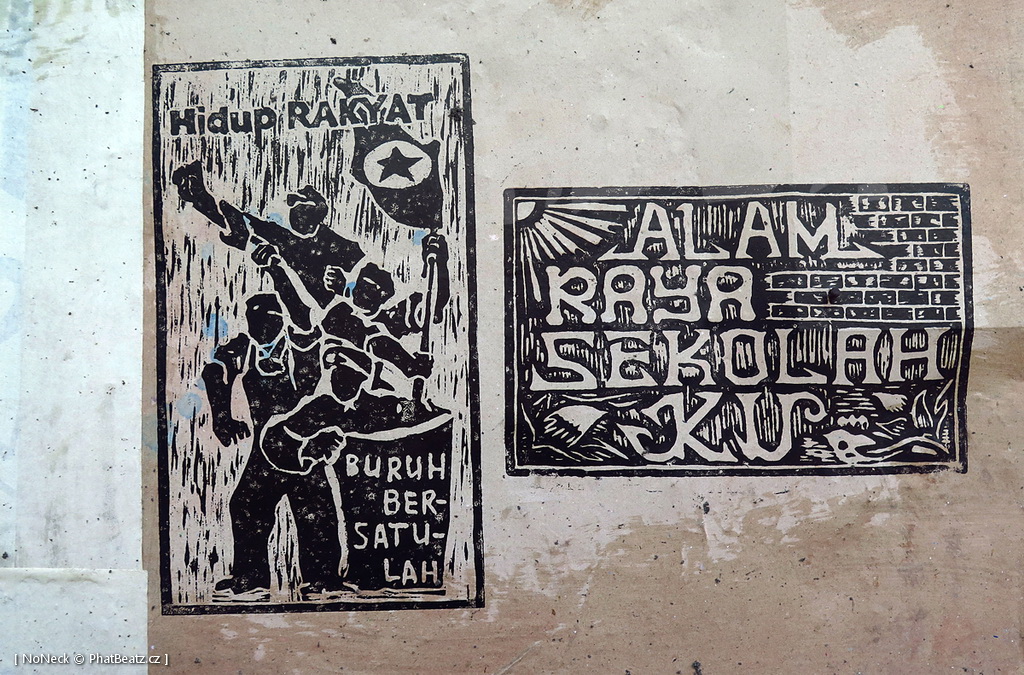 Hidup RAKYAT
BURUH
BER-
SATU-
LAH
ALAM
RAYA
SEKOLAH
KU
[ NoNeck © PhatBeatz.cz ]